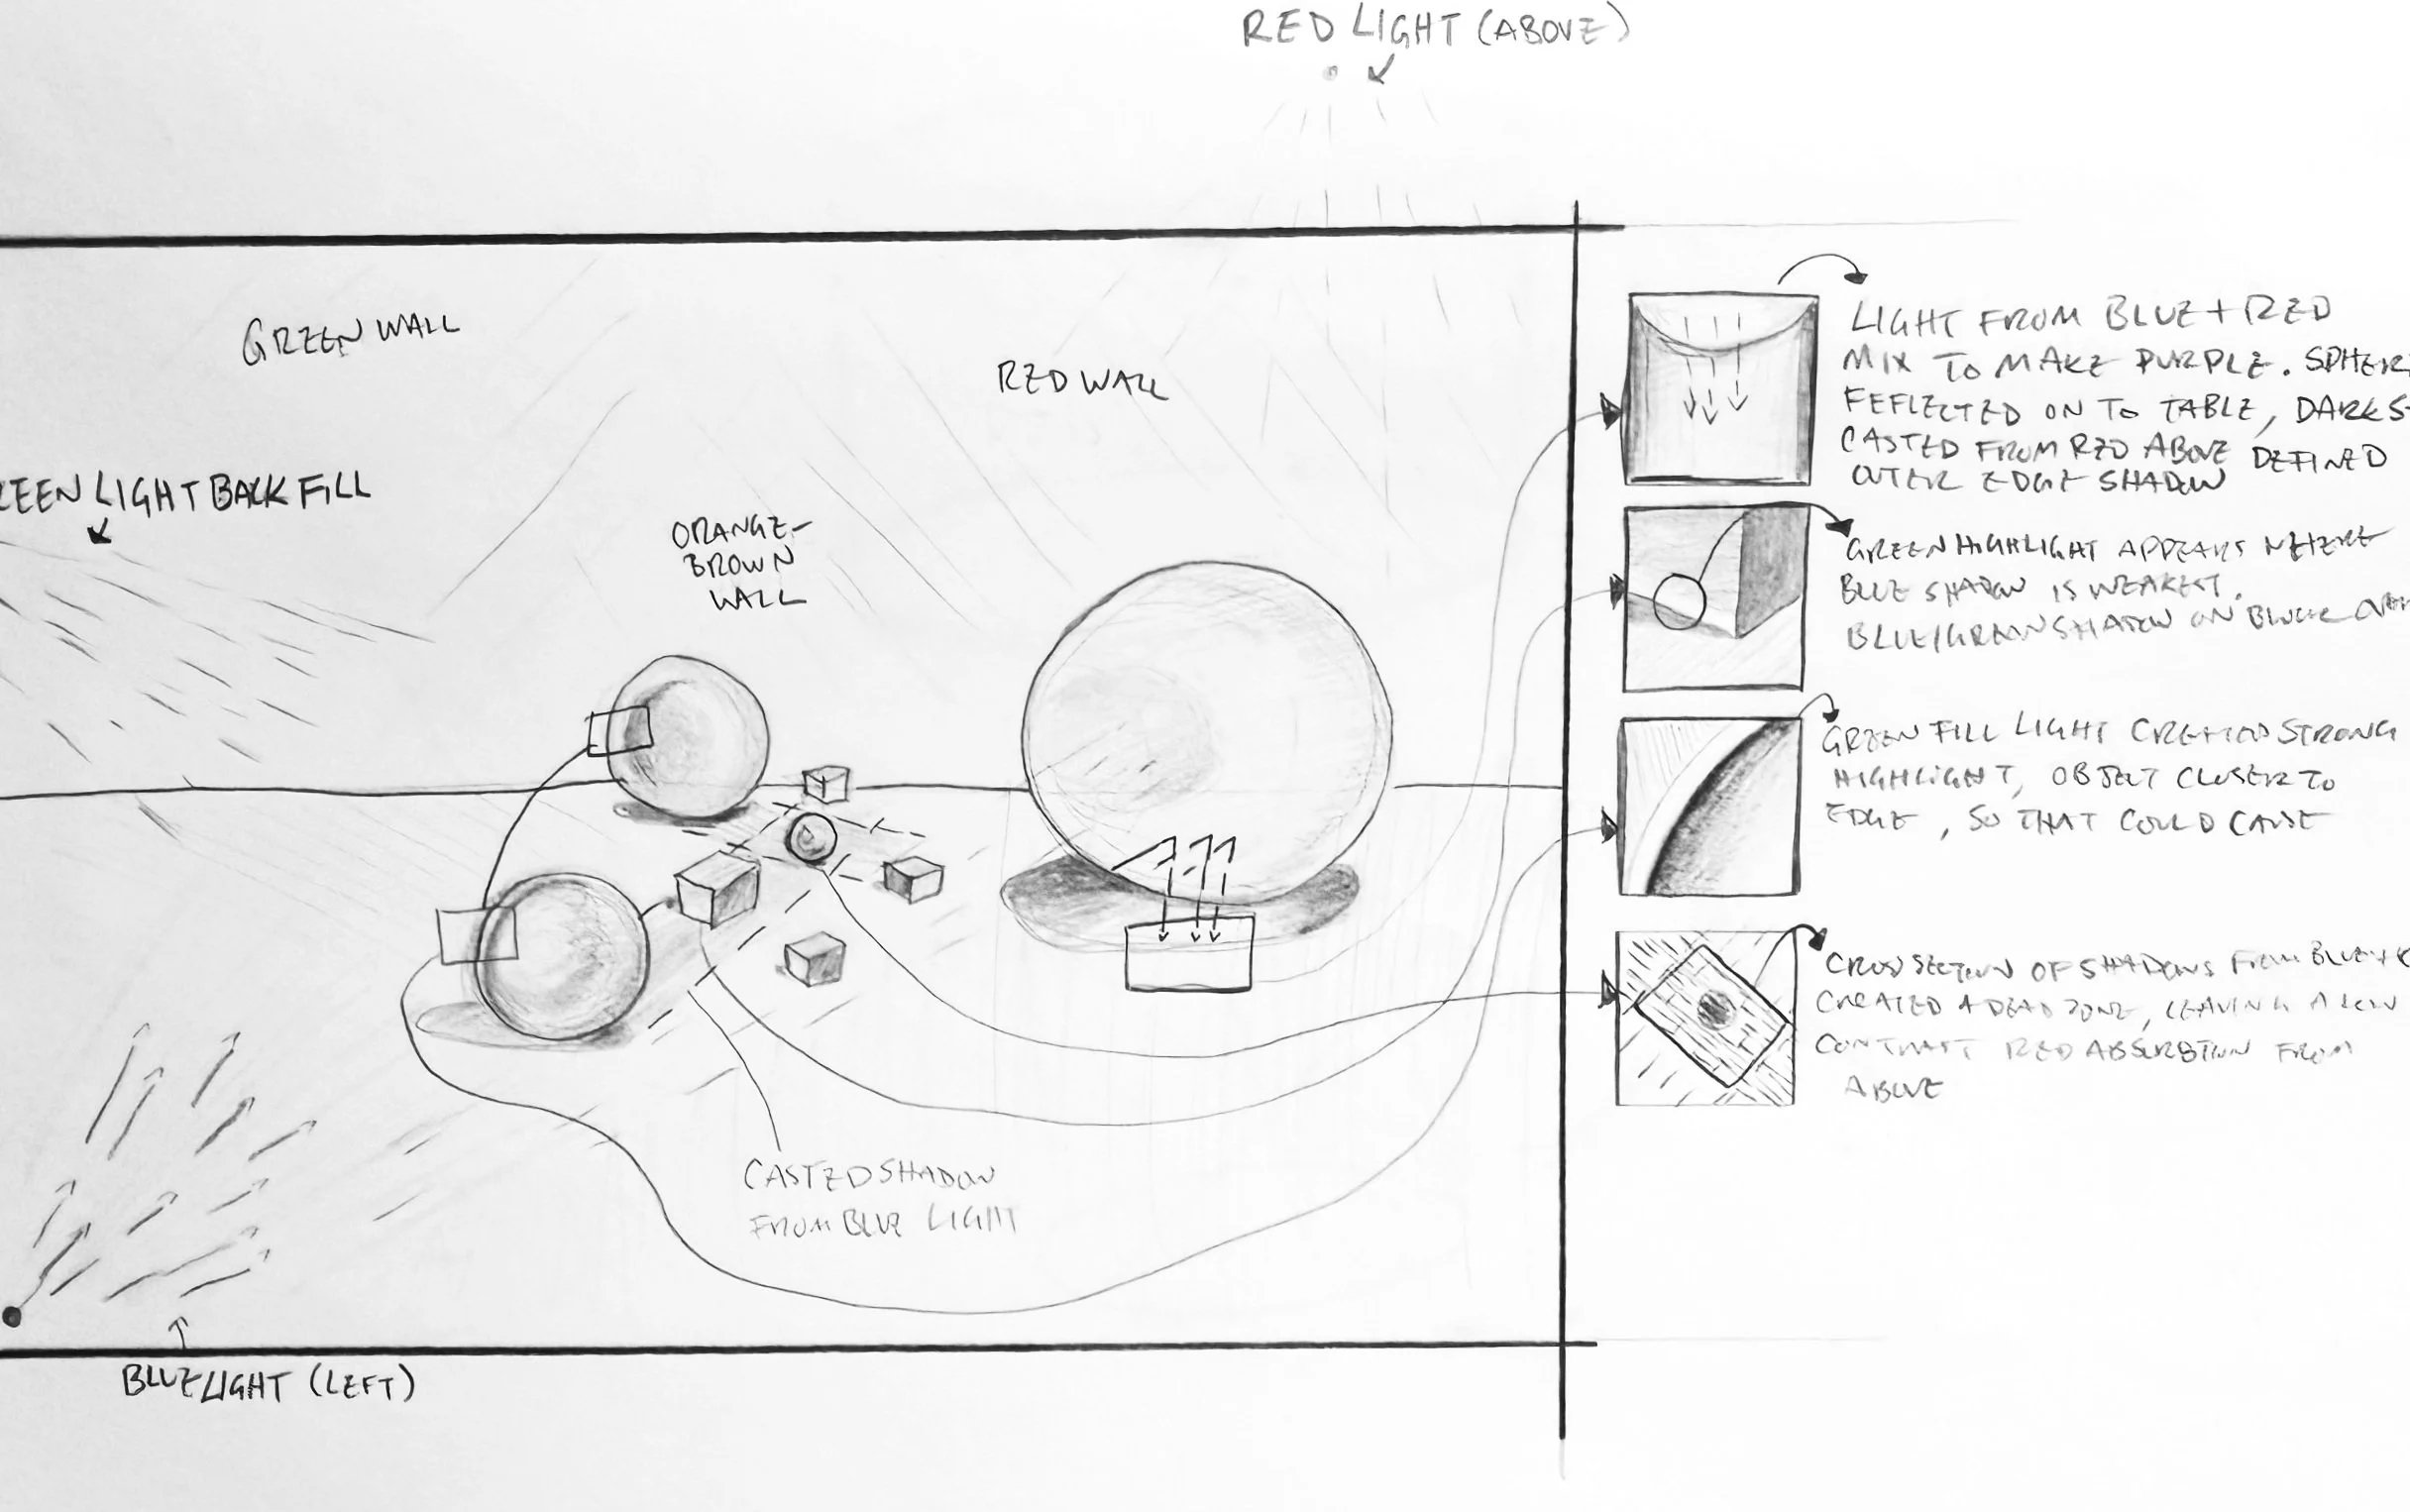 RED LIGHT (ABOVE)
GREEN WALL
RED WALL
REEN LIGHT BACK FILL
ORANGE-
BROWN
WALL
CASTED SHADOW
FROM BLUE LIGHT
BLUE LIGHT (LEFT)
LIGHT FROM BLUE + RED
MIX TO MAKE PURPLE. SPHERE
FEFLECTED ON TO TABLE, DARK S
CASTED FROM RED ABOVE DEFINED
OUTER EDGE SHADOW
GREEN HIGHLIGHT APPEARS WHERE
BLUE SHADOW IS WEAKEST.
BLUE/GREEN SHADOW ON BLOCK
GREEN FILL LIGHT CREATED STRONG
HIGHLIGHT, OBJECT CLOSER TO
EDGE, SO THAT COULD CAUSE
CROSS SECTION OF SHADOWS FROM BLUE +
CREATED A DEAD ZONE, LEAVING A LOW
CONTRAST RED ABSORBTION FROM
ABOVE